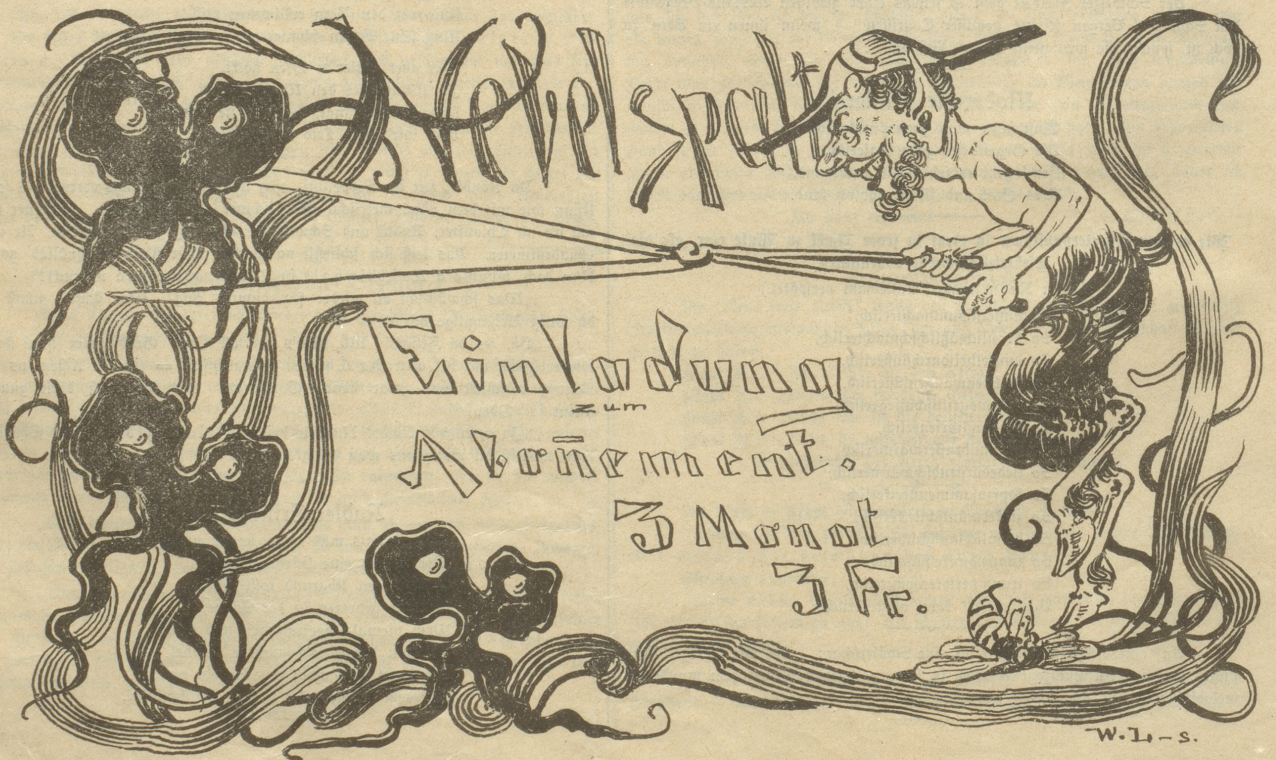 Nebelspalt
Einladung
zum
Abon̄ement.
3 Monat
3 Fr.
W. L-s.